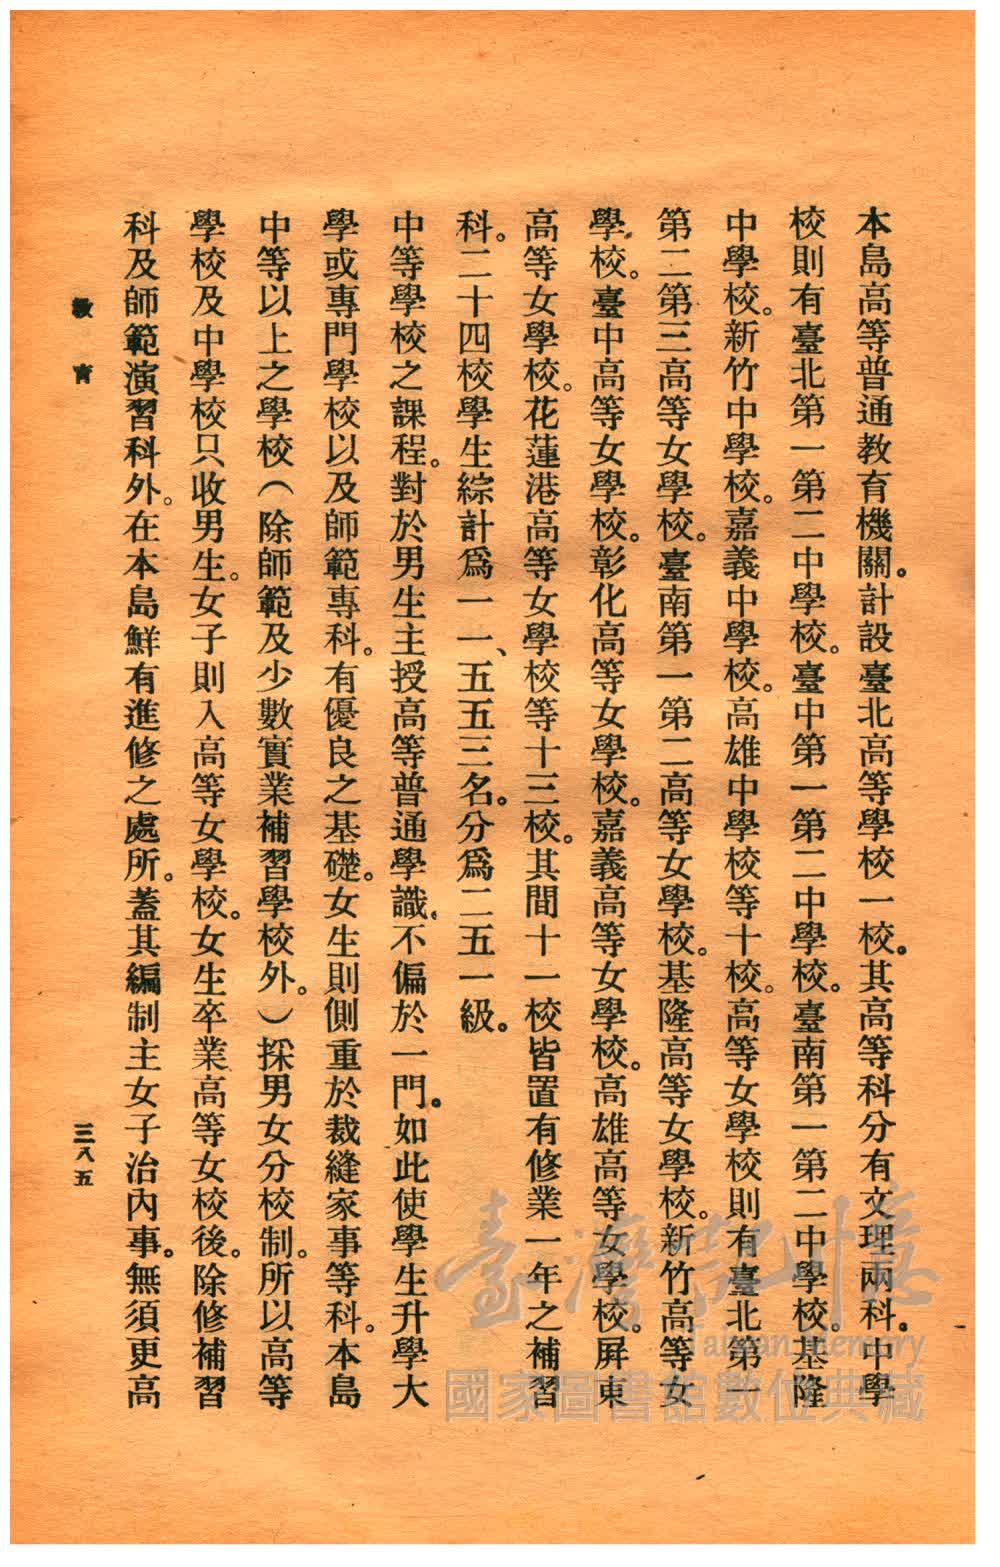 本島高等普通教育機關。計設臺北高等學校一校。其高等科分有文理兩科。中學
校則有臺北第一第二中學校。臺中第一第二中學校。臺南第一第二中學校。基隆
中學校。新竹中學校。嘉義中學校。高雄中學校等十校。高等女學校則有臺北第一
第二第三高等女學校。臺南第一第二高等女學校。基隆高等女學校。新竹高等女
學校。臺中高等女學校。彰化高等女學校。嘉義高等女學校。高雄高等女學校。屏東
高等女學校。花蓮港高等女學校等十三校。其間十一校皆置有修業一年之補習
科。二十四校學生綜計爲一一、五五三名。分爲二五一級。
中等學校之課程。對於男生主授高等普通學識。不偏於一門。如此使學生升學大
學或專門學校以及師範專科。有優良之基礎。女生則側重於裁縫家事等科。本島
中等以上之學校(除師範及少數實業補習學校外。)採男女分校制。所以高等
學校及中學校只收男生。女子則入高等女學校。女生卒業高等女校後。除修補習
科及師範演習科外。在本島鮮有進修之處所。蓋其編制主女子治內事。無須更高
教育
三八五
臺灣記憶
Taiwan Memory
國家圖書館數位典藏